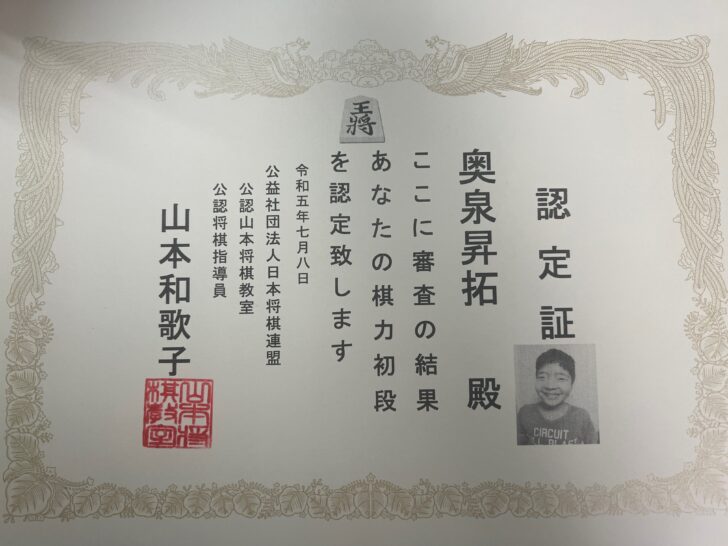 認定証
奥泉昇拓 殿
ここに審査の結果
あなたの棋力初段
を認定致します
令和五年七月八日
公益社団法人日本将棋連盟
公認山本将棋教室
公認将棋指導員
山本和歌子
王將
山本将棋教室
CIRCUIT